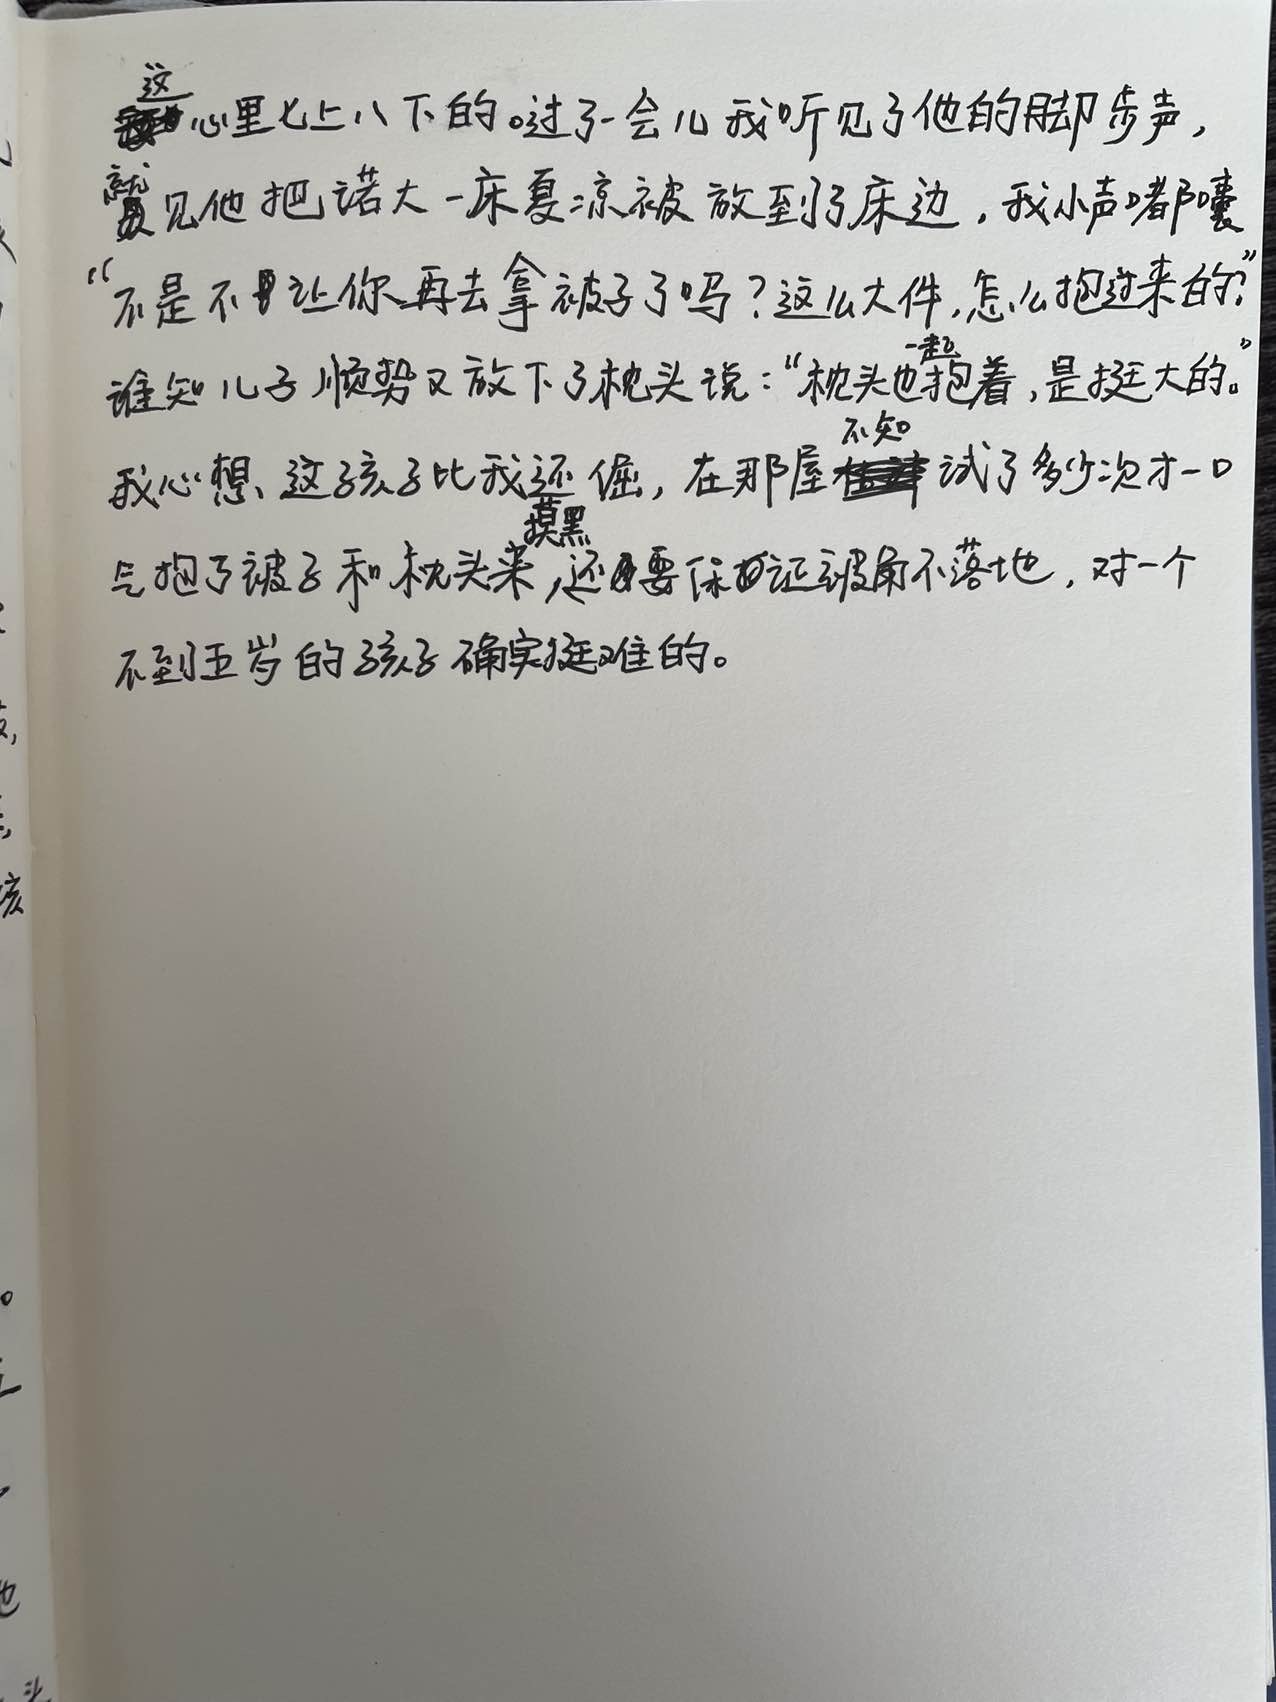 这心里七上八下的。过了一会儿我听见了他的脚步声，
就见他把诺大一床夏凉被放到了床边，我小声嘟囔
“不是不让你再去拿被子了吗？这么大件，怎么抱过来的？”
谁知儿子顺势又放下了枕头说：“枕头也一起抱着，是挺大的。”
我心想、这孩子比我还倔，在那屋不知试了多少次才一口
气抱了被子和枕头摸黑来，还要保证被角不落地，对一个
不到五岁的孩子确实挺难的。